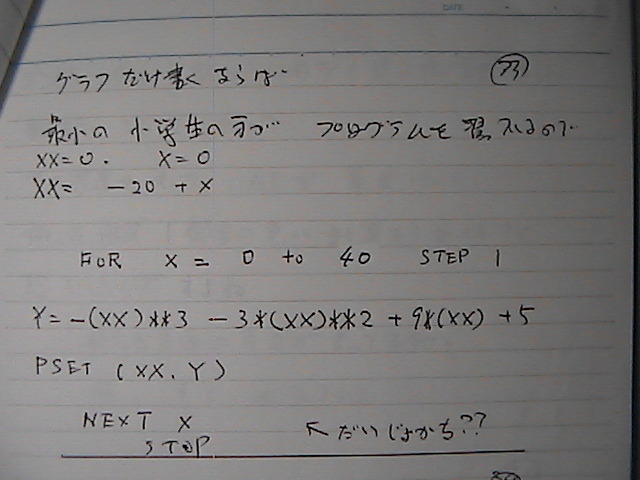 グラフだけ書くならば 73
最小の 小学生の方が プログラムを 習えるので
XX=0. X=0
XX= -20 + X
FOR X = 0 to 40 STEP 1
Y=-(XX)**3 -3*(XX)**2 +9*(XX) +5
PSET (XX. Y)
NEXT X
STOP ↖だいじょかち??